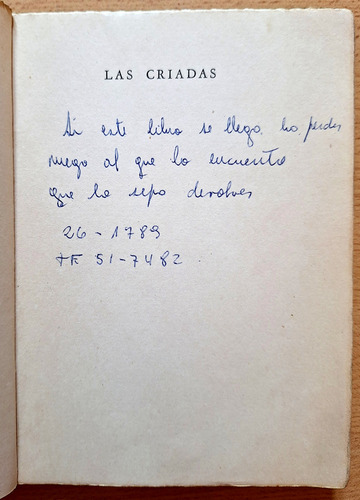 LAS CRIADAS
Si este libro se llega ha perder
ruego al que lo encuentre
que lo sepa devolver
26-1789
TF 51-7482